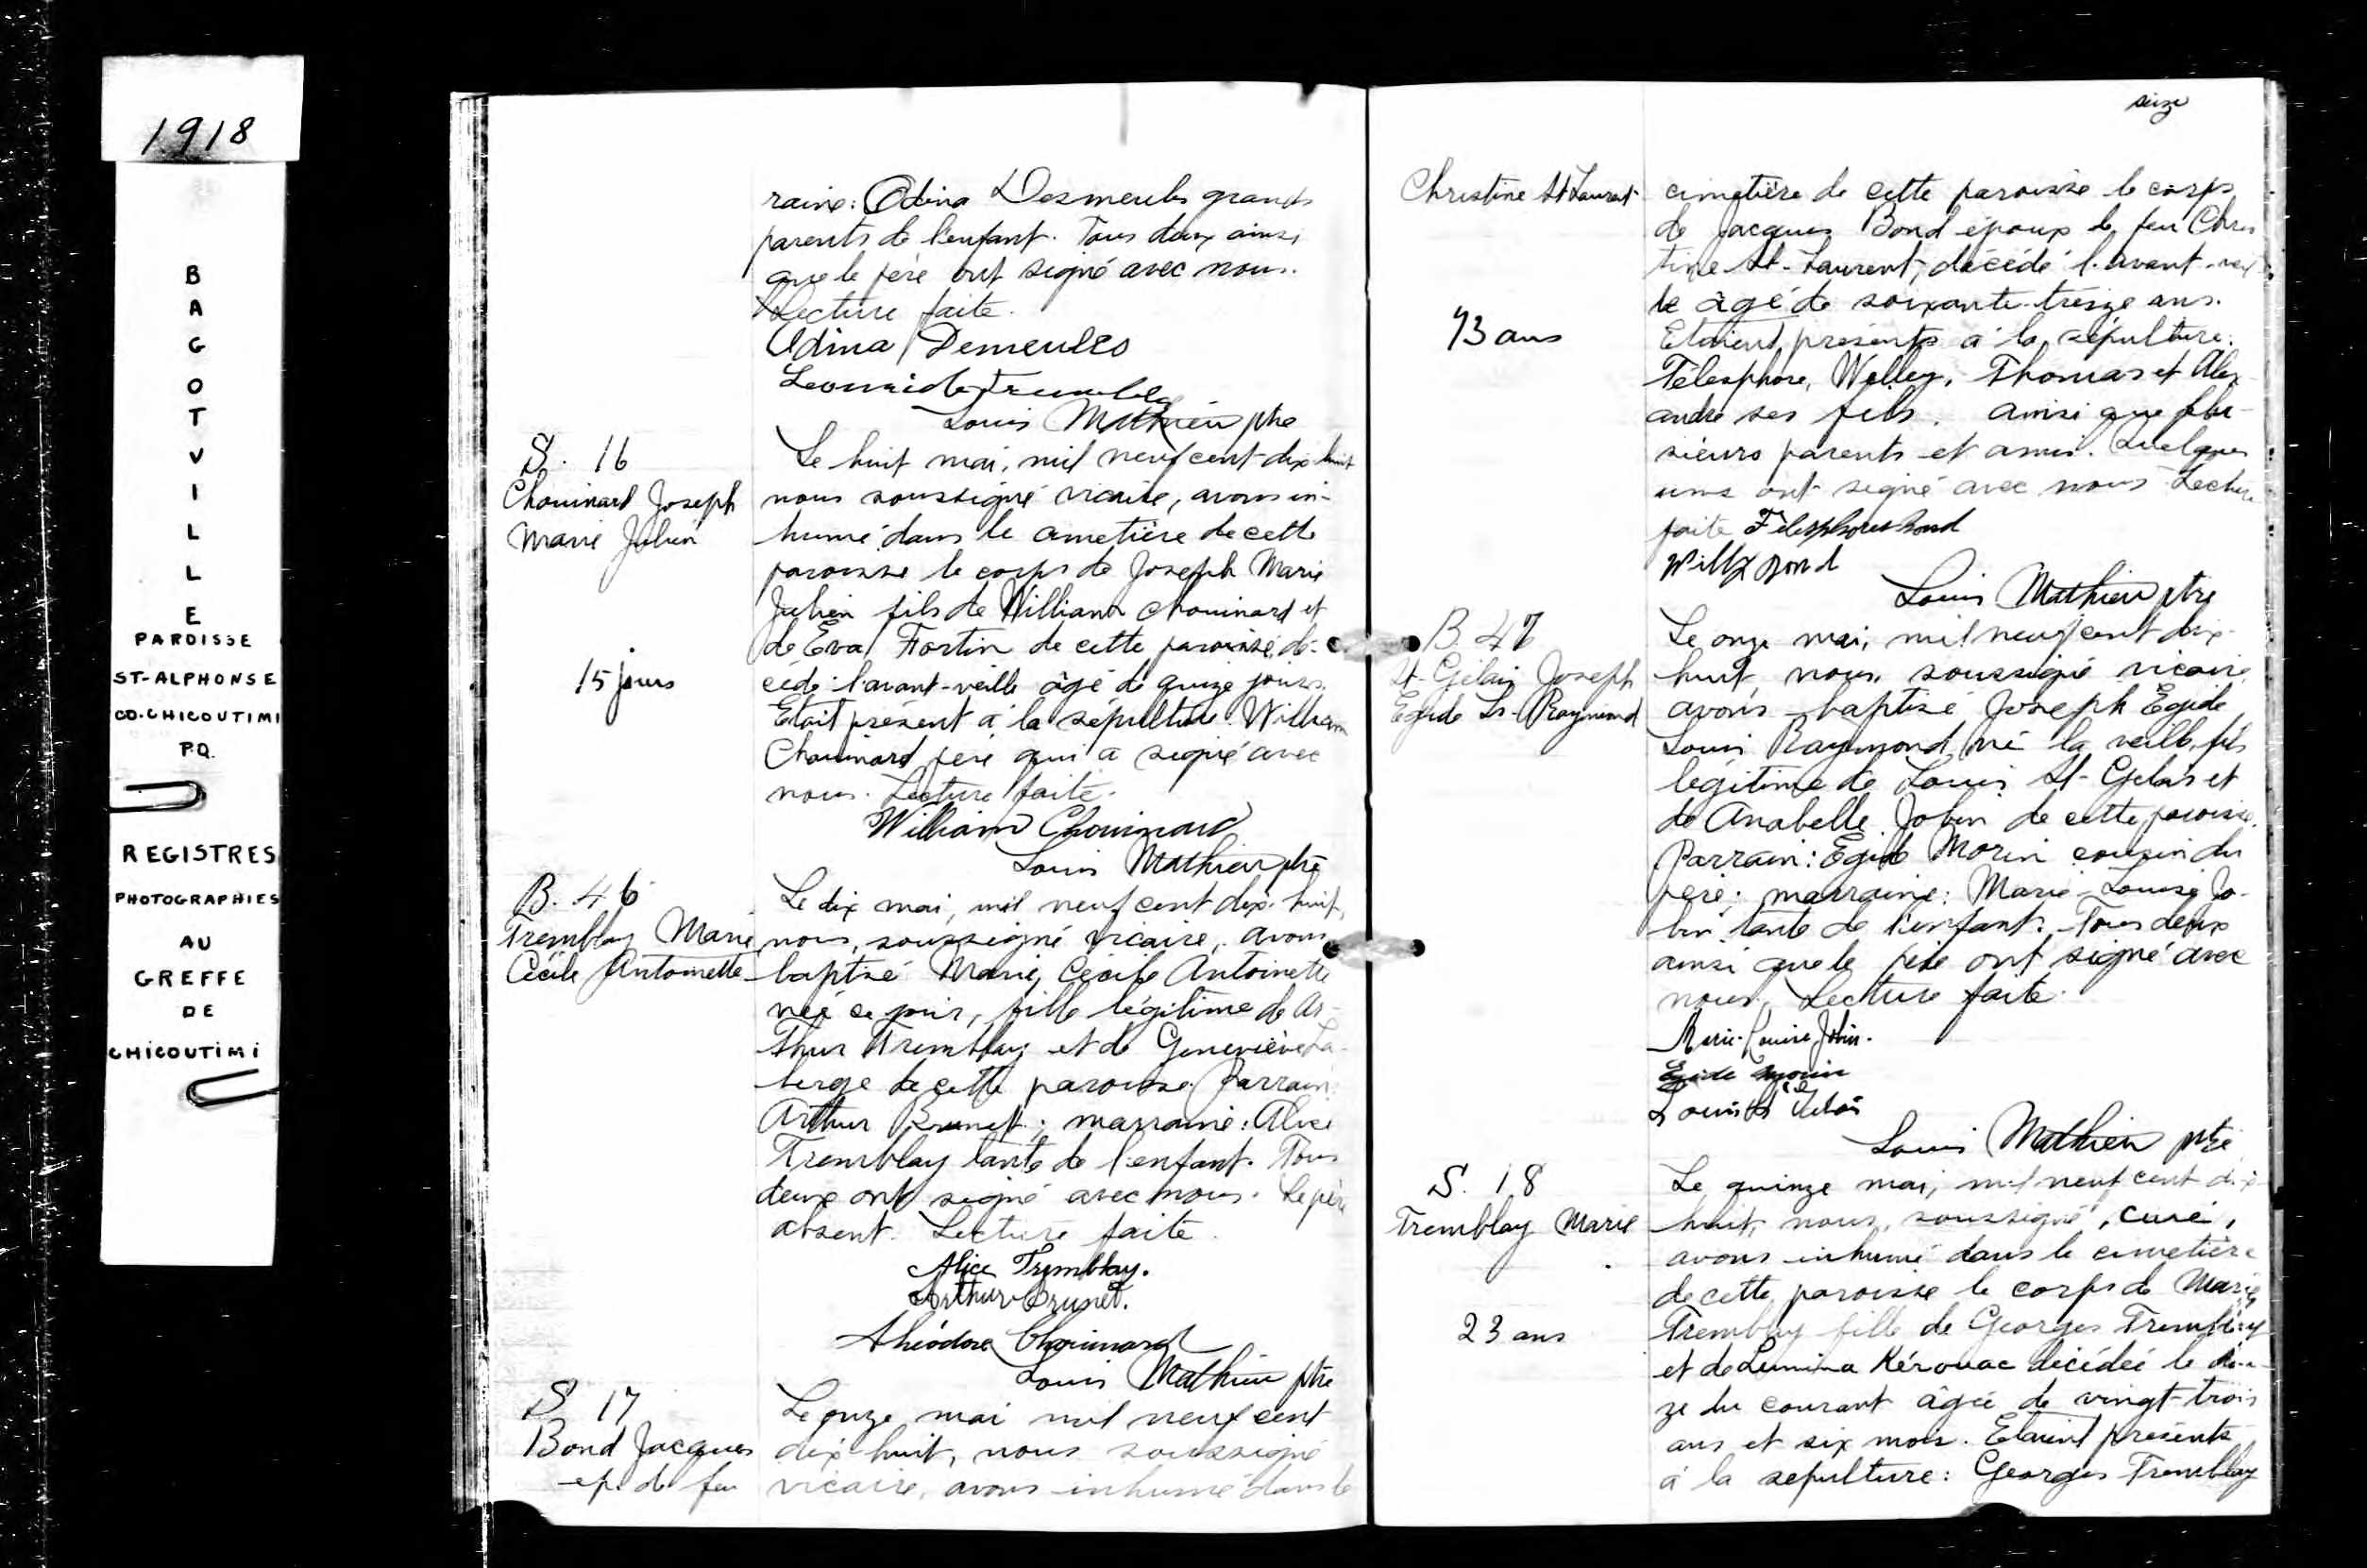 1918
BAGOTVILLE
PAROISSE
ST-ALPHONSE
CO. CHICOUTIMI
P.Q.
REGISTRES
PHOTOGRAPHIES
AU
GREFFE
DE
CHICOUTIMI
raine: Odina Desmeules grands
parents de l'enfant. Tous deux ainsi
que le père ont signé avec nous.
Lecture faite.
Adina Demeules
Leonide Tremblay
Louis Mathieu ptre
S. 16
Chouinard Joseph
Marie Julien
15 jours
Le huit mai, mil neuf cent dix-huit
nous soussigné vicaire, avons in-
humé dans le cimetière de cette
paroisse le corps de Joseph Marie
Julien fils de William Chouinard et
de Eva Fortin de cette paroisse, dé-
cédé l'avant-veille âgé de quinze jours.
Etait présent à la sépulture William
Chouinard père qui a signé avec
nous. Lecture faite.
William Chouinard
Louis Mathieu ptre
B. 46
Tremblay Marie
Cécile Antoinette
Le dix mai, mil neuf cent dix-huit,
nous, soussigné vicaire, avons
baptisé Marie, Cécile Antoinette
née ce jour, fille légitime de Ar-
thur Tremblay et de Geneviève La-
berge de cette paroisse. Parrain:
Arthur Brunet; marraine: Alice
Tremblay tante de l'enfant. Tous
deux ont signé avec nous. Le père
absent. Lecture faite.
Alice Tremblay.
Arthur Brunet.
Théodore Chouinard
Louis Mathieu ptre
S. 17
Bond Jacques
ép. de feu
Le onze mai mil neuf cent
dix-huit, nous soussigné
vicaire, avons inhumé dans le
seize
Christine St Laurent
73 ans
cimetière de cette paroisse le corps
de Jacques Bond époux de feu Chris
tine St-Laurent, décédé l'avant-veil
le âgé de soixante-treize ans.
Etaient présents à la sépulture:
Télesphore, Welley, Thomas et Alex-
andre ses fils. ainsi que plu-
sieurs parents et amis. Quelques
uns ont signé avec nous Lecture
faite Telesphore bond
Willy bond
Louis Mathieu ptre
B. 47
St-Gelais Joseph
Egide Ls-Raymond
Le onze mai, mil neuf cent dix-
huit, nous, soussigné vicaire
avons baptisé Joseph Egide
Louis Raymond, né la veille, fils
légitime de Louis St-Gelais et
de Anabelle Jobin de cette paroisse.
Parrain: Egide Morin cousin du
père; marraine: Marie-Louise Jo-
bin tante de l'enfant. Tous deux
ainsi que le père ont signé avec
nous. Lecture faite.
Marie-Louise Jobin.
Egide Morin
Louis St Gelais
Louis Mathieu ptre
S. 18
Tremblay Marie
23 ans
Le quinze mai, mil neuf cent dix-
huit, nous, soussigné, curé,
avons inhumé dans le cimetière
de cette paroisse le corps de Marie
Tremblay fille de Georges Tremblay
et de Lumina Kérouac décédée le dou-
ze du courant âgée de vingt-trois
ans et six mois. Etaient présents
à la sepulture: Georges Tremblay